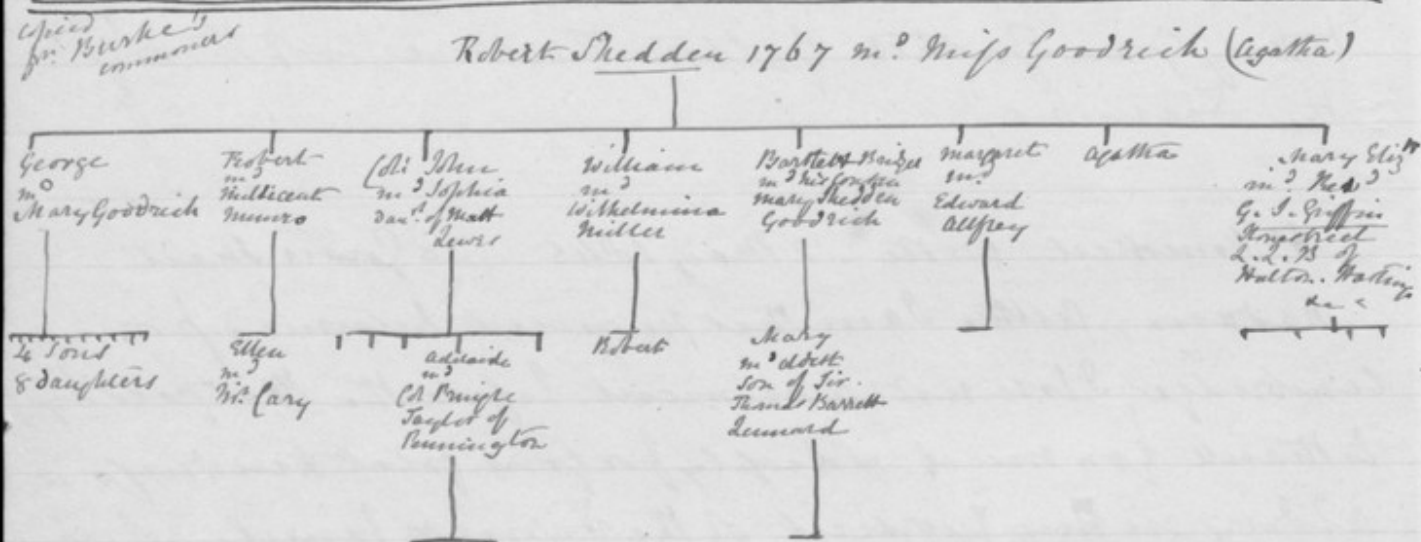 copied
fr. Burke's
commoners
Robert Shedden 1767 md. Miss Goodrich (Agatha)
George
md
Mary Goodrich
4 Sons
8 daughters
Robert
md
Millicent
Munro
Ellen
md
Mr. Cary
Col: John
md Sophia
Daur. of Matt
Lewis
Adelaide
md
Col Pringle
Taylor of
Pennington
William
md
Wilhelmina
Miller
Robert
Bartlett Bridger
md his Cousin
Mary Shedden
Goodrich
Mary
md eldest
Son of Sir.
Thomas Barrett
Lennard
Margaret
md
Edward
Allfrey
Agatha
Mary Elizth
md Revd
G. I. Griffin
Stonestreet
L.L.B of
Halton. Hastings